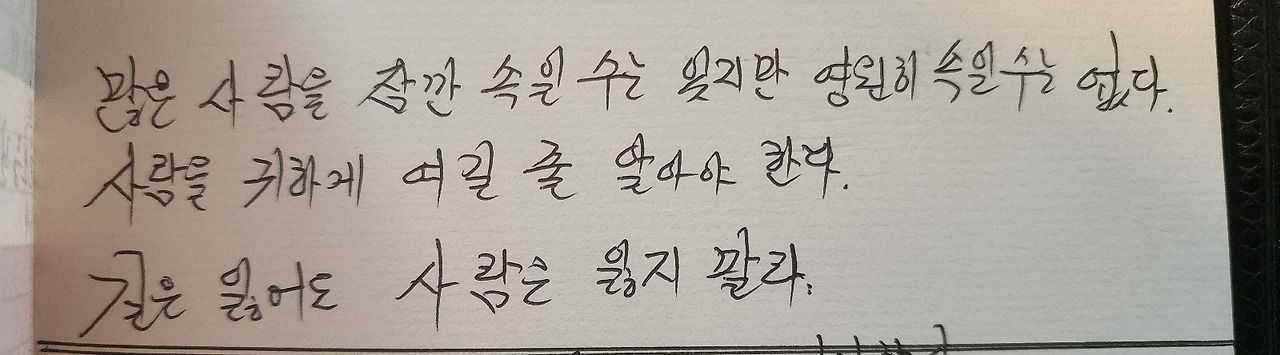 많은 사람을 잠깐 속일 수는 있지만 영원히 속일수는 없다.
사람을 귀하게 여길 줄 알아야 한다.
길은 잃어도 사람은 잃지 말라.